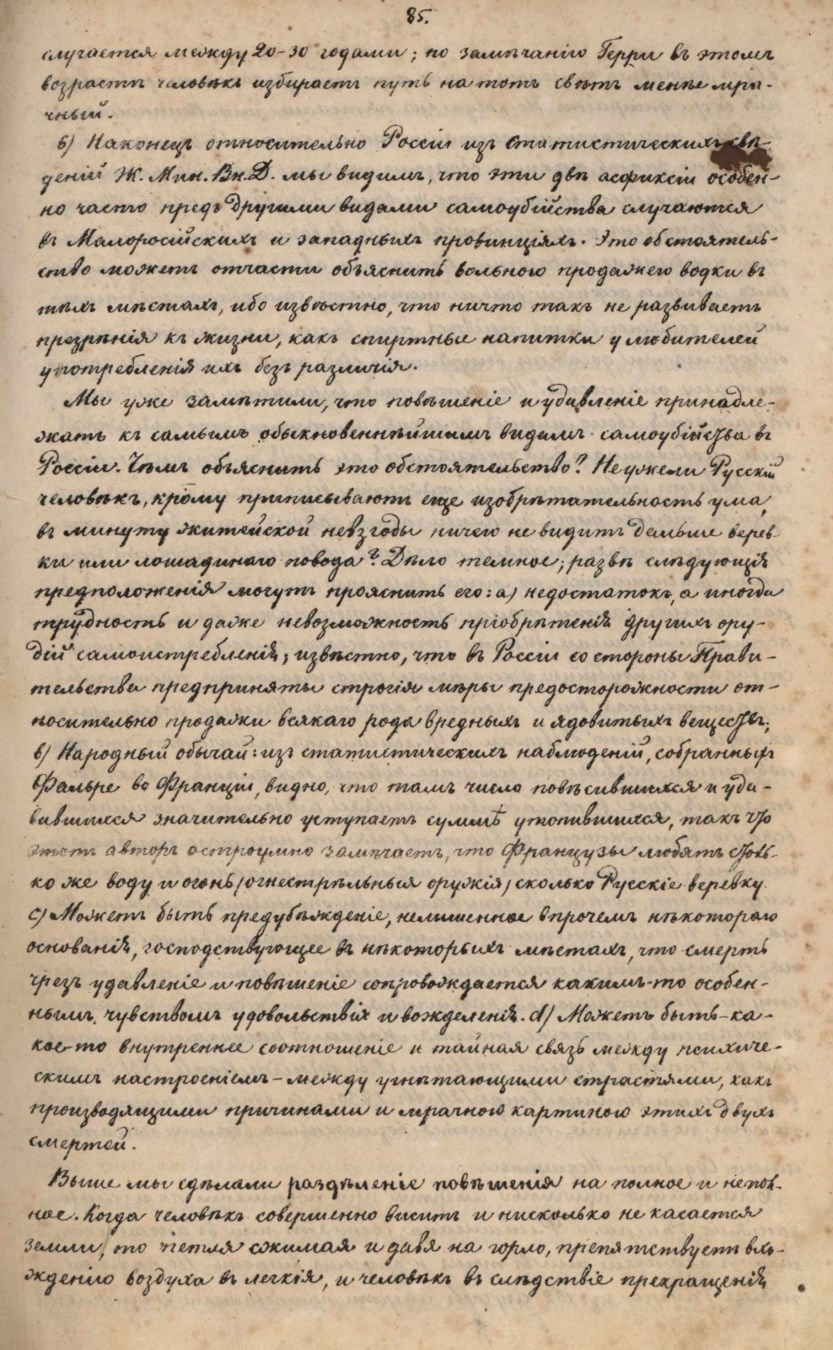 85.
случается между 20-30 годами; по замѣчанію Герри въ этомъ
возрастѣ человѣкъ избираетъ путь на тотъ свѣтъ менѣе мра-
чный.
б) Наконецъ относительно Россіи изъ статистическихъ свѣ-
деній Ж. Мин. Вн. Д. мы видимъ, что эти двѣ асфиксіи особен-
но часто предъ другими видами самоубійства случаются
въ Малоросійскихъ и западныхъ провинціяхъ. Это обстоятель-
ство можетъ отчасти объяснить вольною продажею водки въ
тѣхъ мѣстахъ, ибо извѣстно, что ничто такъ не развиваетъ
презрѣнія къ жизни, какъ спиртные напитки у любителей
употребленія ихъ безъ различія.
Мы уже замѣтили, что повѣшеніе и удавленіе принадле-
жатъ къ самымъ обыкновеннѣйшимъ видамъ самоубійства въ
Россіи. Чѣмъ объяснить это обстоятельство? Неужели Русскій
человѣкъ, кому приписываютъ еще изобрѣтательность ума,
въ минуту житейской невзгоды ничего не видитъ дальше верев-
ки или лошадинаго повода? Дѣло темное; развѣ слѣдующія
предположенія могутъ прояснить его: а) недостатокъ, а иногда
трудность и даже невозможность пріобрѣтенія другихъ ору-
дій самоистребленія; извѣстно, что въ Россіи со стороны Прави-
тельства предприняты строгія мѣры предосторожности от-
носительно продажи всякаго рода вредныхъ и ядовитыхъ веществъ;
b) Народный обычай: изъ статистическихъ наблюденій, собранныхъ
Фальре во Франціи, видно, что тамъ число повѣсившихся и уда-
вившихся значительно уступаетъ суммѣ утопившихся, такъ что
этотъ авторъ остроумно замѣчаетъ, что Французы любятъ столь-
ко же воду и огонь (огнестрѣльныя оружія) сколько Русскіе веревку.
c) Можетъ быть предубѣжденіе, нелишенное впрочемъ нѣкотораго
основанія, господствующее въ нѣкоторыхъ мѣстахъ, что смерть
чрезъ удавленіе и повѣшеніе сопровождается какимъ-то особен-
нымъ чувствомъ удовольствія и вожделенія. d) Можетъ быть - ка-
кое-то внутреннее соотношеніе и тайная связь между психиче-
скимъ настроеніемъ - между угнѣтающими страстями, какъ
производящими причинами и мрачною картиною этихъ двухъ
смертей.
Выше мы сдѣлали раздѣленіе повѣшенія на полное и непол-
ное. Когда человѣкъ совершенно виситъ и нисколько не касается
земли, то петля сжимая и давя на горло, препятствуетъ вхо-
жденію воздуха въ легкія, и человѣкъ въ слѣдствіе прекращенія